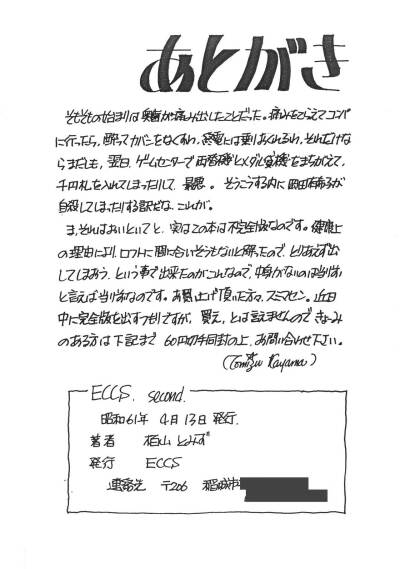 あとがき
そもそもの始まりは奥歯が痛み出したことだった。痛みをこらえてコンパ
に行ったら、酔ってカバンをなくすわ、終電には乗りおくれるわ、それだけな
らまだしも、翌日、ゲームセンターで両替機とメダル貸機をまちがえて、
千円札を入れてしまったりして、最悪。そうこうする内に岡田有希子が
自殺してしまったりする訳だな、これが。
ま、それはおいといて、実はこの本は不完全版なのです。健康上
の理由により、ロフトに間に合いそうもないと解ったので、とりあえず出
してしまおう、という事で出来たのがこれなので、中身がないのは当り前
と言えば当り前なのです。お買い上げ頂いた方々、スミマセン。近日
中に完全版を出すつもりですが、買え、とは言えませんので、きょうみ
のある方は下記まで 60円切手同封の上、お問い合わせ下さい。
(Tomizu Kayama)
ECCS. second.
昭和61年 4月13日 発行.
著者 栢山 とみず
発行 ECCS
連絡先 〒206 稲城市